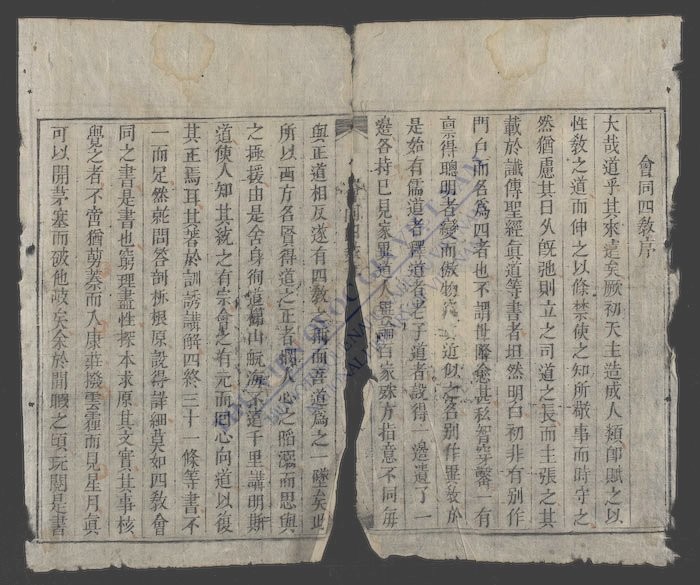 會同四教序
大哉道乎其來遠矣厥初天主造成人類卽賦之以
性教之道而伸之以條禁使之知所敬事而時守之
然猶慮其日久旣弛則立之司道之長而主張之其
載於識傳聖經眞道等書者坦然明白初非有別作
門戶而名爲四者也不謂世降愈甚私智穿鑿一有
禀得聰明者變而倣物 近似之各別作異教於
是始有儒道者釋道者老子道者說得一邊遺了一
邊各持己見家異道人異論百家殊方指意不同每
與正道相反遂有四教 前而吾道爲之一墜矣此
所以西方名賢得道之正者憫人心之陷溺而思與
之拯援由是舍身徇道梯山航海不遠千里講明斯
道使人知其統之有宗會之有元而回心向道以復
其正焉耳其著於訓誘講解四終三十一條等書不
一而足然就問答剖拆根原說得詳細莫如四教會
同之書是書也窮理盡性探本求原其文實其事核
覺之者不啻猶剪蓁而入康莊撥雲霾而見星月眞
可以開茅塞而破他岐矣余於閒暇之頃玩閱是書